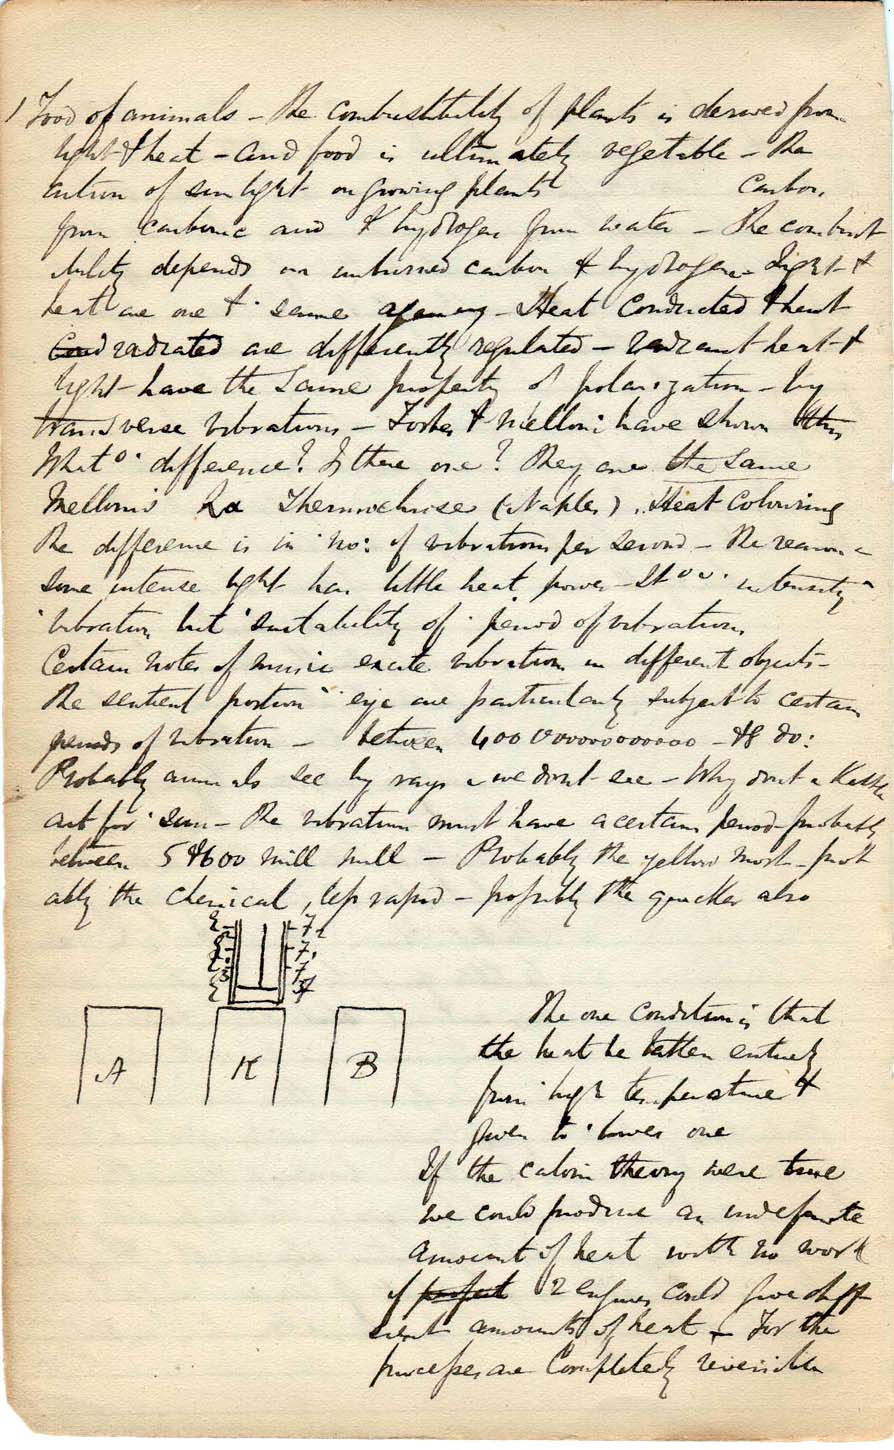 Food of animals – The combustibility of plants is derived from
light & heat – and food is ultimately vegetable – The
action of sun light on growing plants carbon
from carbonic acid & hydrogen from water – The combust
ibility depends on unburned carbon & hydrogen – Light &
heat are one & same agency – Heat conducted & heat
Cond radiated are differently regulated – Radiant heat &
light have the same property of polarization – by
transverse vibrations – Forbes & Melloni have shown this
What difference? Is there one? They are the same
Melloni's La Thermochrose (Naples). Heat Colouring
The difference is in no: of vibrations per second – The reason
some intense light has little heat power – It intensity
vibration but suitability of period of vibrations
Certain notes of music excite vibration in different objects –
The sentient portion eye are particularly subject to certain
periods of vibration – between 400 000000000000 – & 8 do:
Probably animals see by rays we dont see – Why dont a Kettle
act for sun – The vibrations must have a certain period – probably
between 5 & 600 mill mill – Probably the yellow most – prob
ably the chemical, less rapid – possibly the quicker also
A K B
The one condition is that
the heat be taken entirely
from high temperature &
given to lower one
If the caloric theory were true
we could produce an indefinite
amount of heat with no work
if perfect 2 engines could give diff
erent amounts of heat – For the
processes are completely reversible